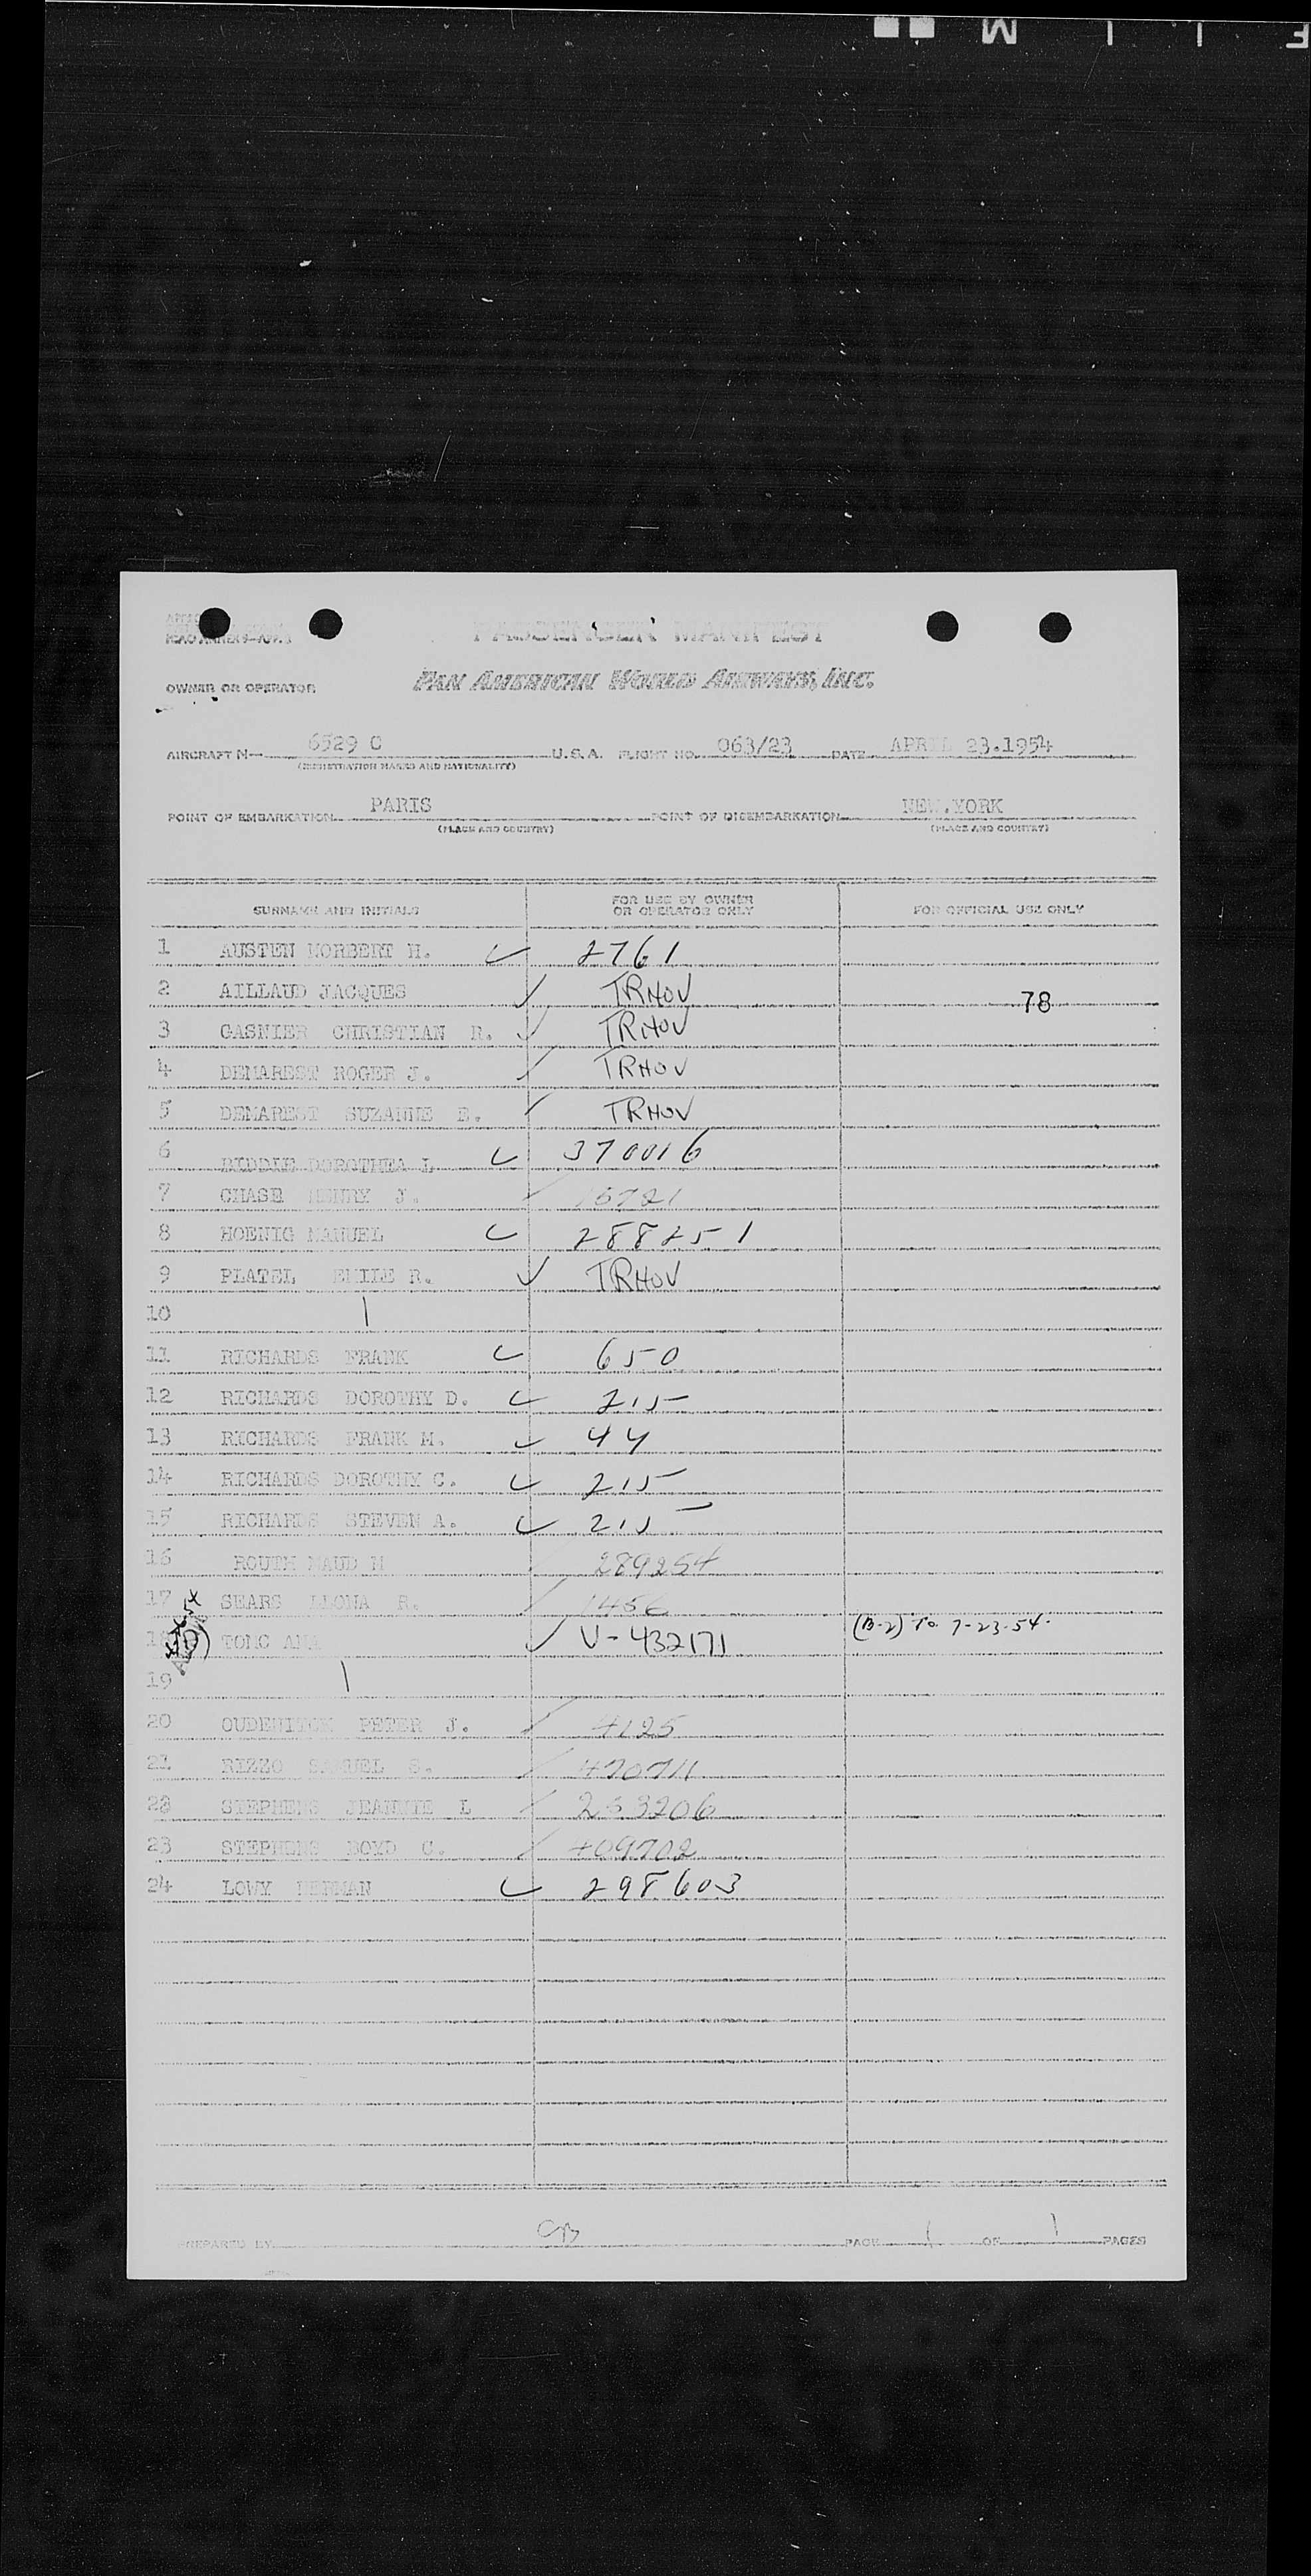 F I L M
PASSENGER MANIFEST
OWNER OR OPERATOR PAN AMERICAN WORLD AIRWAYS, INC.
AIRCRAFT N— 6529 C U.S.A. FLIGHT NO. 063/23 DATE APRIL 23.1954
(REGISTRATION MARKS AND NATIONALITY)
POINT OF EMBARKATION PARIS POINT OF DISEMBARKATION NEW.YORK
(PLACE AND COUNTRY) (PLACE AND COUNTRY)
SURNAME AND INITIALS FOR USE BY OWNER OR OPERATOR ONLY FOR OFFICIAL USE ONLY
1 AUSTEN NORBERT H. 2761
2 AILLAUD JACQUES TRHOV 78
3 GASNIER CHRISTIAN R. TRHOV
4 DEMAREST ROGER J. TRHOV
5 DEMAREST SUZANNE E. TRHOV
6 DOROTHEA L 370016
7 CHASE HENRY J.
8 HOENIG MANUEL 288251
9 PLATEL EMILE R. TRHOV
10
11 RICHARDS FRANK 650
12 RICHARDS DOROTHY D. 215
13 RICHARDS FRANK M. 44
14 RICHARDS DOROTHY C. 215
15 RICHARDS STEVEN A. 215
16 ROUTH MAUD N 289254
17 SEARS R. 1456
18 TOMC V-432171 (B-2) To 7-23-54.
19
20 PETER J. 4125
21 RIZZO SAMUEL S. 470711
22 STEPHENS L 253206
23 STEPHENS BOYD C. 409702
24 LOWY HERMAN 298603
PREPARED BY CB PAGE 1 OF 1 PAGES